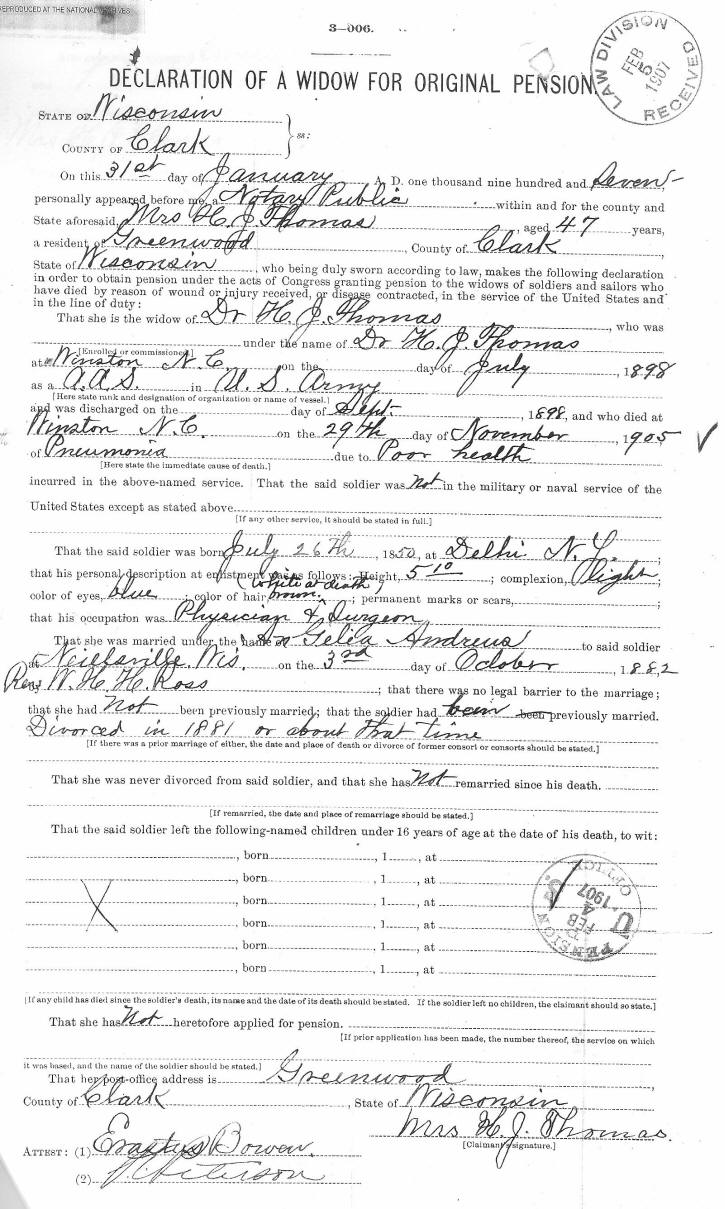 REPRODUCED AT THE NATIONAL ARCHIVES
3—006.
LAW DIVISION
FEB
5
1907
RECEIVED
DECLARATION OF A WIDOW FOR ORIGINAL PENSION.
STATE OF Wisconsin
COUNTY OF Clark } ss:
On this 31st day of January A. D. one thousand nine hundred and Seven
personally appeared before me, a Notary Public within and for the county and
State aforesaid, Mrs H. J. Thomas, aged 47 years,
a resident of Greenwood, County of Clark,
State of Wisconsin, who being duly sworn according to law, makes the following declaration
in order to obtain pension under the acts of Congress granting pension to the widows of soldiers and sailors who
have died by reason of wound or injury received, or disease contracted, in the service of the United States and
in the line of duty:
That she is the widow of Dr H. J. Thomas, who was
under the name of Dr H. J. Thomas
[Enrolled or commissioned.]
at Winston N. C. on the day of July, 1898
as a A.A.S. in U. S. Army
[Here state rank and designation of organization or name of vessel.]
and was discharged on the day of Sept., 1898, and who died at
Winston N. C. on the 29th day of November, 1905
of Pneumonia due to Poor health
[Here state the immediate cause of death.]
incurred in the above-named service. That the said soldier was Not in the military or naval service of the
United States except as stated above
[If any other service, it should be stated in full.]
That the said soldier was born July 26th, 1850, at Delhi N. Y.;
that his personal description at enlistment was as follows: Height, 5 10; complexion, Light;
(white at death)
color of eyes, blue; color of hair, brown; permanent marks or scars, ;
that his occupation was Physician & Surgeon
That she was married under the name of Telia Andrews to said soldier
at Neillsville Wis. on the 3rd day of October, 1882
Rev. W. H. H. Ross; that there was no legal barrier to the marriage;
that she had Not been previously married; that the soldier had been been previously married.
Divorced in 1881 or about that time
[If there was a prior marriage of either, the date and place of death or divorce of former consort or consorts should be stated.]
That she was never divorced from said soldier, and that she has Not remarried since his death.
[If remarried, the date and place of remarriage should be stated.]
That the said soldier left the following-named children under 16 years of age at the date of his death, to wit:
, born , 1 , at
, born , 1 , at
, born , 1 , at
, born , 1 , at
, born , 1 , at
, born , 1 , at
U. S. PENSION OFFICE
FEB
4
1907
[If any child has died since the soldier's death, its name and the date of its death should be stated. If the soldier left no children, the claimant should so state.]
That she has Not heretofore applied for pension.
[If prior application has been made, the number thereof, the service on which
it was based, and the name of the soldier should be stated.]
That her post-office address is Greenwood,
County of Clark, State of Wisconsin
Mrs H. J. Thomas.
[Claimant's signature.]
ATTEST: (1) Erastus Bowen.
(2) Peterson